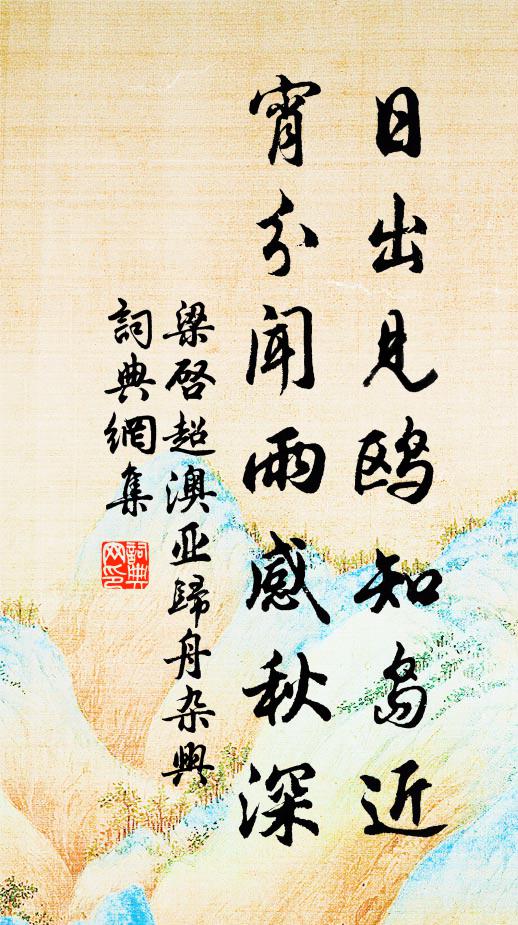 日出見鸥知岛近
宵分闻雨感秋深
梁啓超澳亚歸舟杂興
詞典網集
詞典
网印